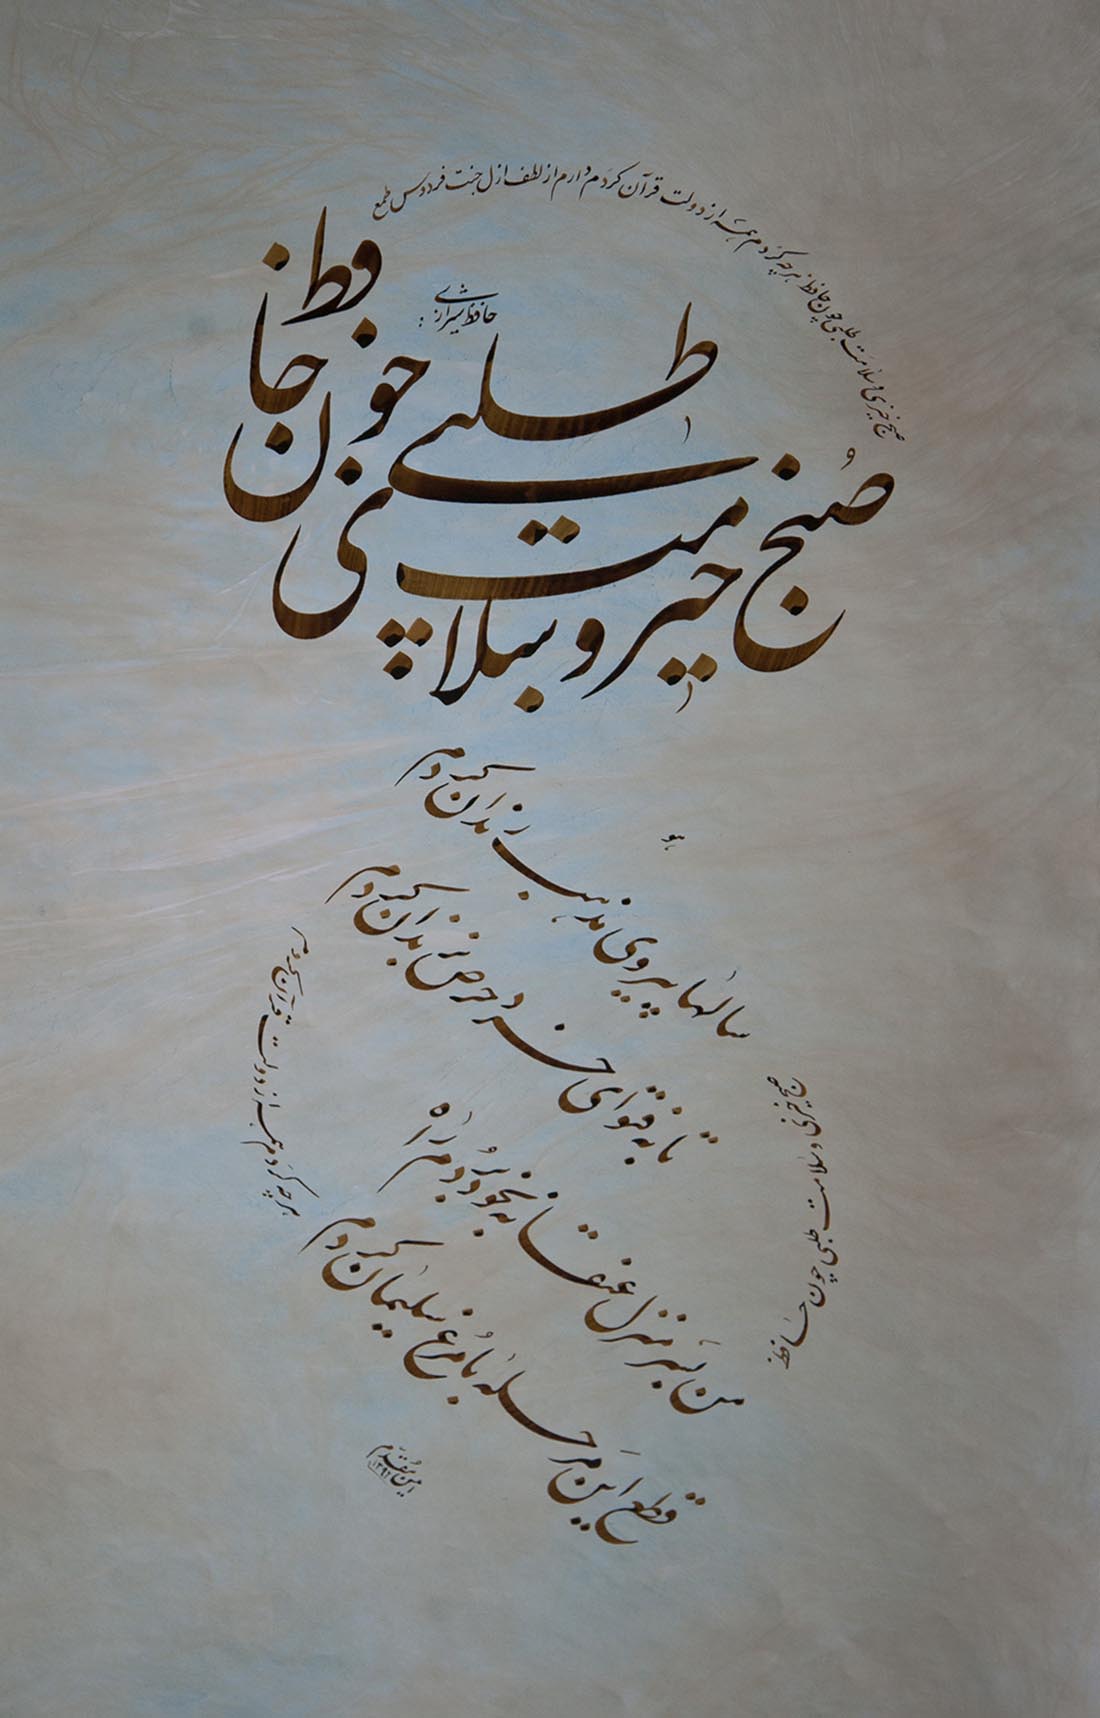 صبح خیزی و سلامت طلبی چون حافظ هر چه کردم همه از دولت قرآن کردم دارم از لطف ازل جنت فردوس طمع
حافظ شیرازی:
صبح خیزی و سلامت طلبی چون حافظ
هو
سالها پیروی مذهب رندان کردم
تا به فتوای خرد حرص بزندان کردم
من بسر منزل عنقا نه بخود بردم راه
قطع این مرحله با مرغ سلیمان کردم
صبح خیزی و سلامت طلبی چون حافظ
هر چه کردم همه از دولت قرآن کردم
امین مقدم
۱۳۹۲